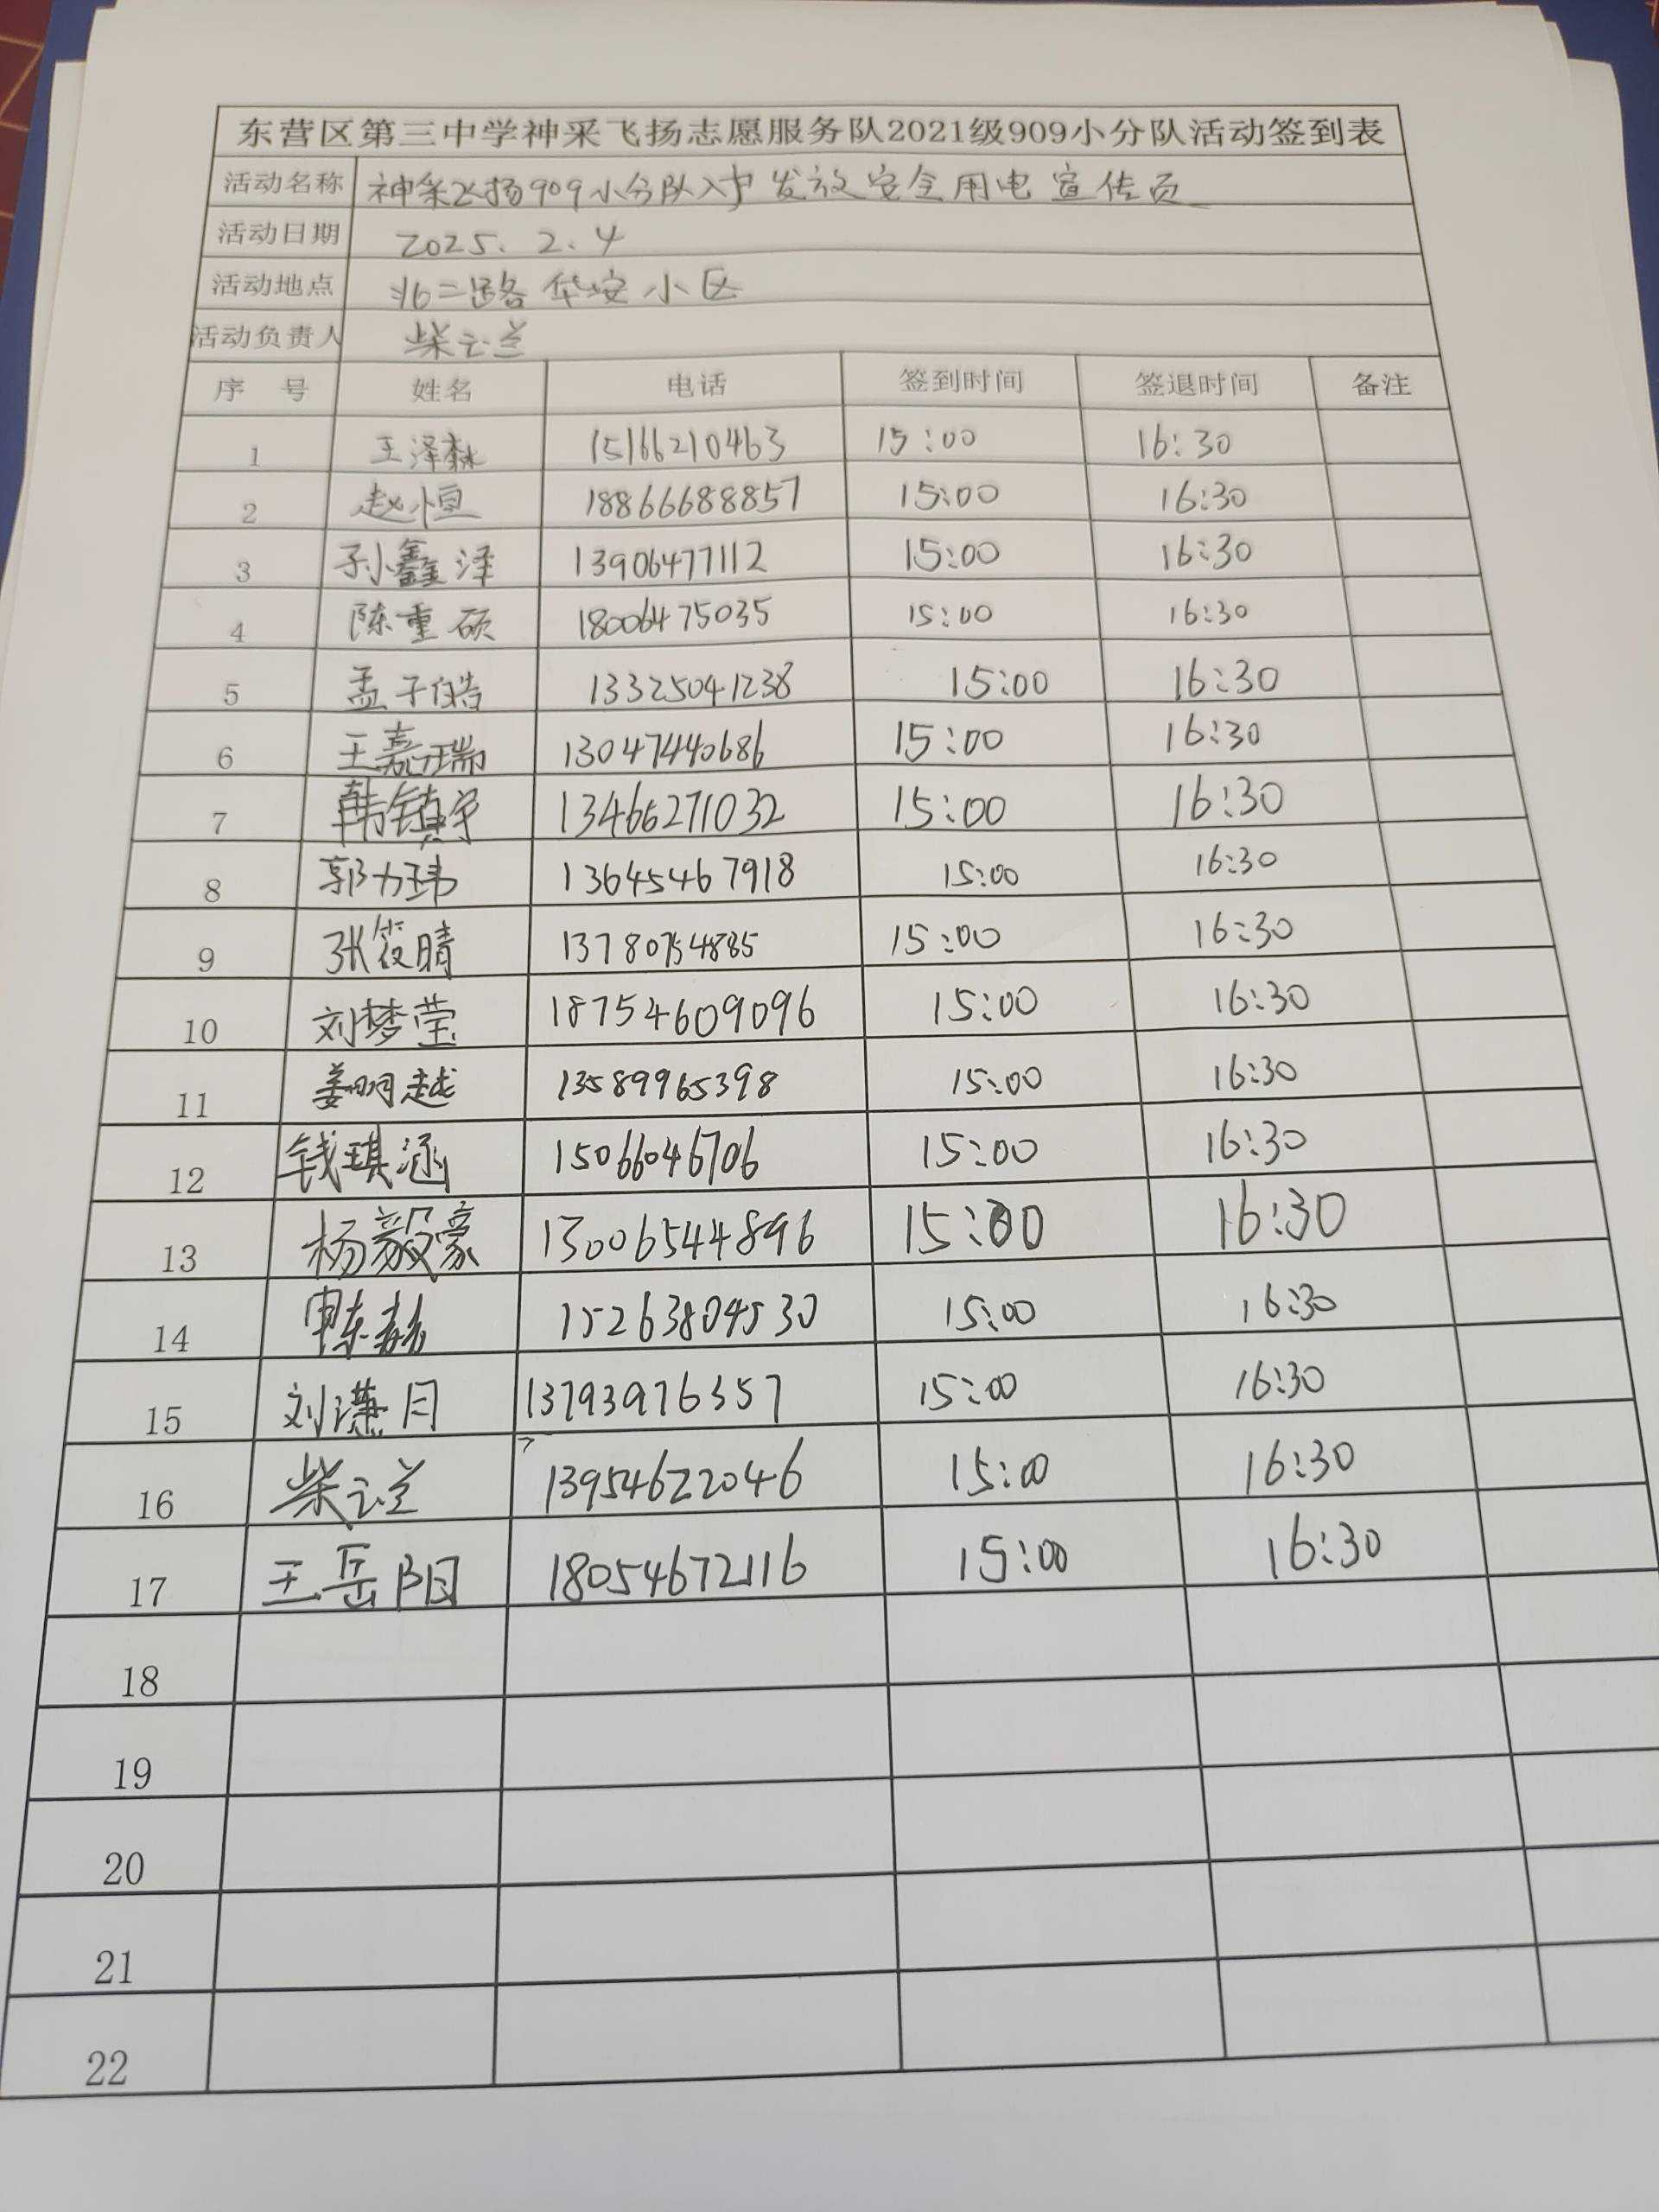 东营区第三中学神采飞扬志愿服务队2021级909小分队活动签到表
活动名称 神采飞扬909小分队入户发放安全用电宣传页
活动日期 2025.2.4
活动地点 北二路华安小区
活动负责人 柴云兰
序 号 姓名 电话 签到时间 签退时间 备注
1 王泽霖 15166210463 15:00 16:30
2 赵恒 18866688857 15:00 16:30
3 孙鑫泽 13906477112 15:00 16:30
4 陈重硕 18006475035 15:00 16:30
5 孟子皓 13325041238 15:00 16:30
6 王嘉瑞 13047440686 15:00 16:30
7 韩镇宇 13466271032 15:00 16:30
8 郭力玮 13645467918 15:00 16:30
9 张筱晴 13780754885 15:00 16:30
10 刘梦莹 18754609096 15:00 16:30
11 姜明越 13589965398 15:00 16:30
12 钱琪涵 15066046706 15:00 16:30
13 杨毅豪 13006544896 15:00 16:30
14 15263804530 15:00 16:30
15 刘潇月 13793976357 15:00 16:30
16 柴云兰 13954622046 15:00 16:30
17 王岳阳 18054672116 15:00 16:30
18
19
20
21
22